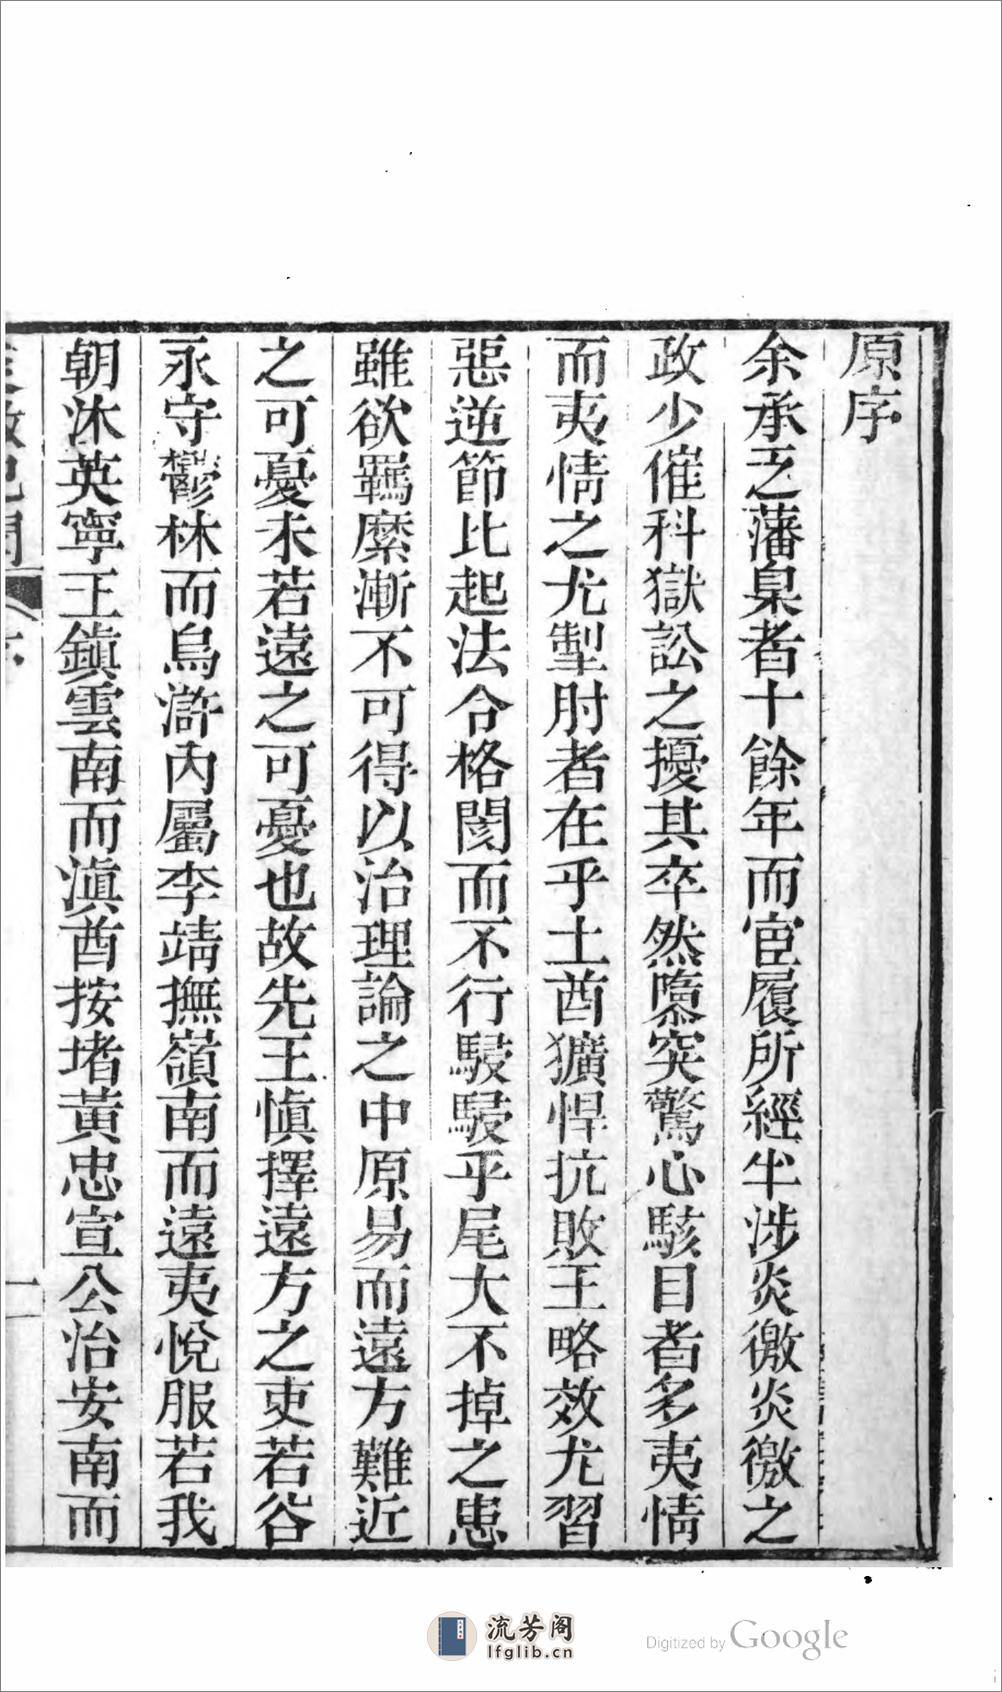 原序
余承乏藩臬者十餘年而宦履所經半涉炎徼炎徼之
政少催科獄訟之擾其卒然隳突驚心駭目者多夷情
而夷情之尤掣肘者在乎土酋獷悍抗敗王略效尤習
惡逆節比起法合格閡而不行駸駸乎尾大不掉之患
雖欲羈縻漸不可得以治理論之中原易而遠方難近
之可憂未若遠之可憂也故先王慎擇遠方之吏若谷
永守鬱林而烏滸內屬李靖撫嶺南而遠夷悅服若我
朝沐英寧王鎮雲南而滇酋按堵黃忠宣公治安南而
炎徼紀聞 序 一
流芳阁
lfglib.cn
Digitized by Google